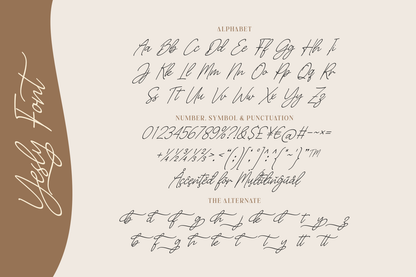 Yesly Font
ALPHABET
Aa Bb Cc Dd Ee Ff Gg Hh Ii
Jj Kk Ll Mm Nn Oo Pp Qq Rr
Ss Tt Uu Vv Ww Xx Yy Zz
NUMBER, SYMBOL & PUNCTUATION
0123456789%?!&$£¥€@#~-×=
Accented for Multilingual
THE ALTERNATE
b d f g h j k l t y s
b f g h k l t y tt tt